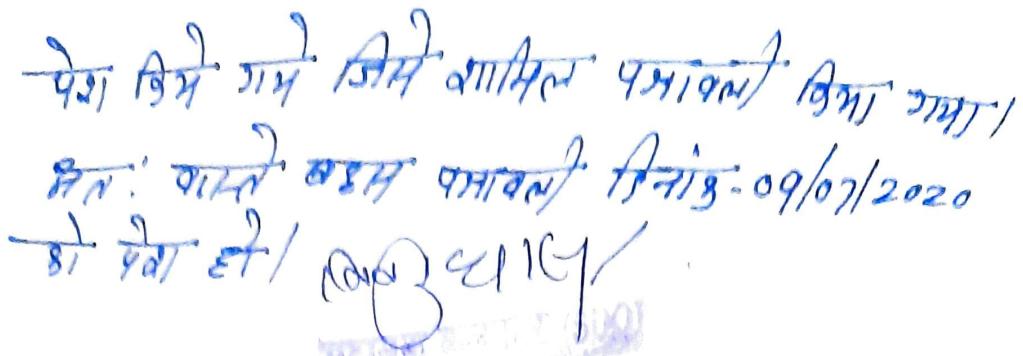 पेश किये गये जिसे शामिल पत्रावली किया गया।
अतः वास्ते बहस पत्रावली दिनांक-09/07/2020
को पेश हो।